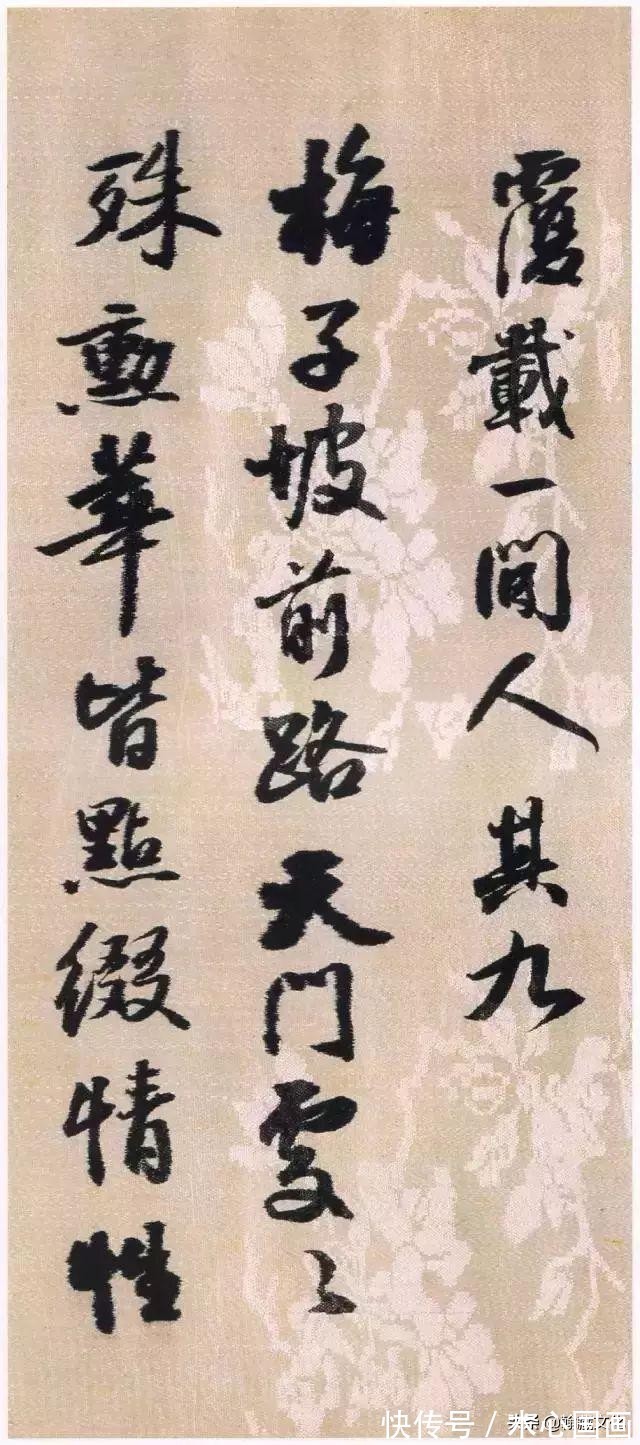 覆載一閒人其九
梅子坡前路天門處〻
殊勳華皆點綴情性
快传号